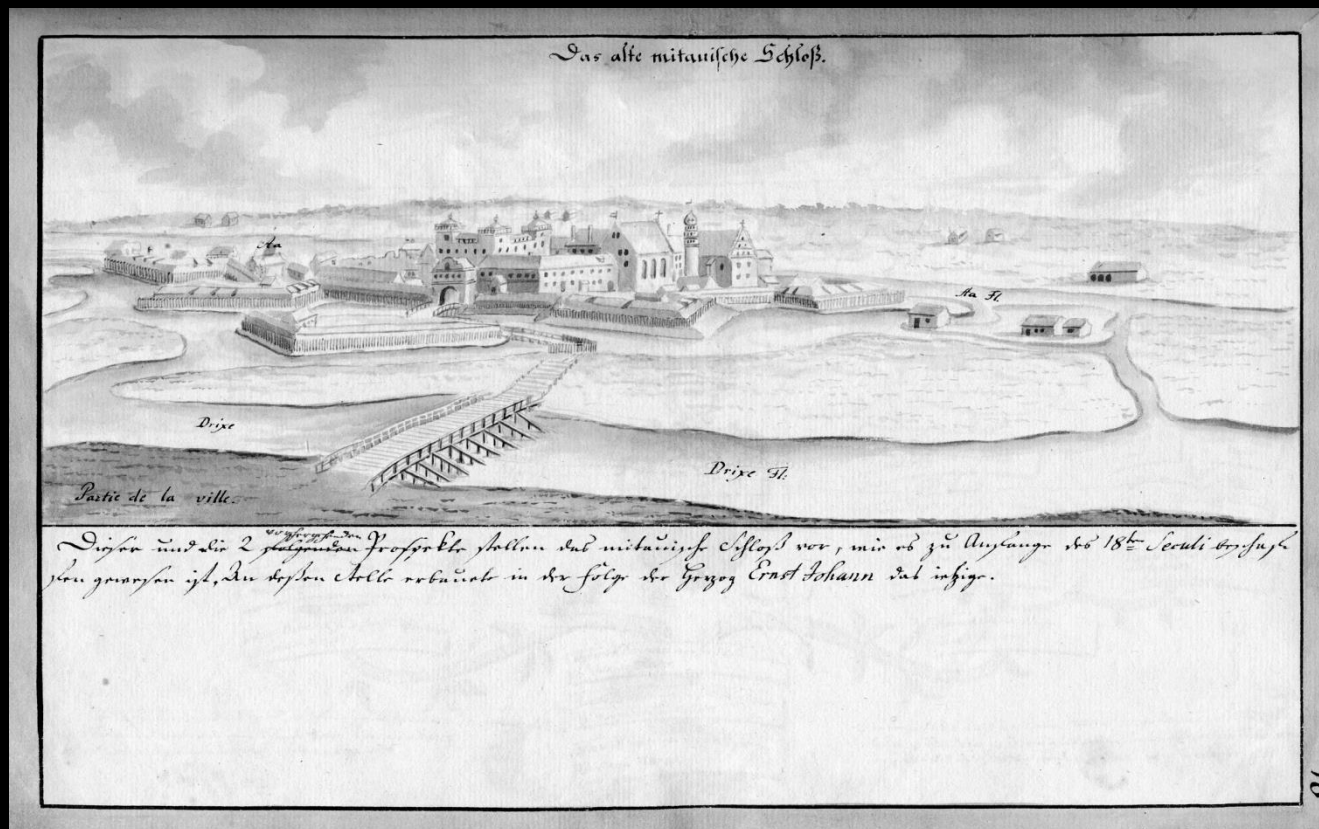 Das alte mitauische Schloß.
Aa
Aa Fl.
Drixe
Drixe Fl:
Partie de la ville.
vorhergehenden
Dieser und die 2 folgenden Prospekte stellen das mitauische Schloß vor, wie es zu Anfange des 18ten Seculi beschaf-
fen gewesen ist, An deßen Stelle erbauete in der Folge der Herzog Ernst Johann das ietzige.